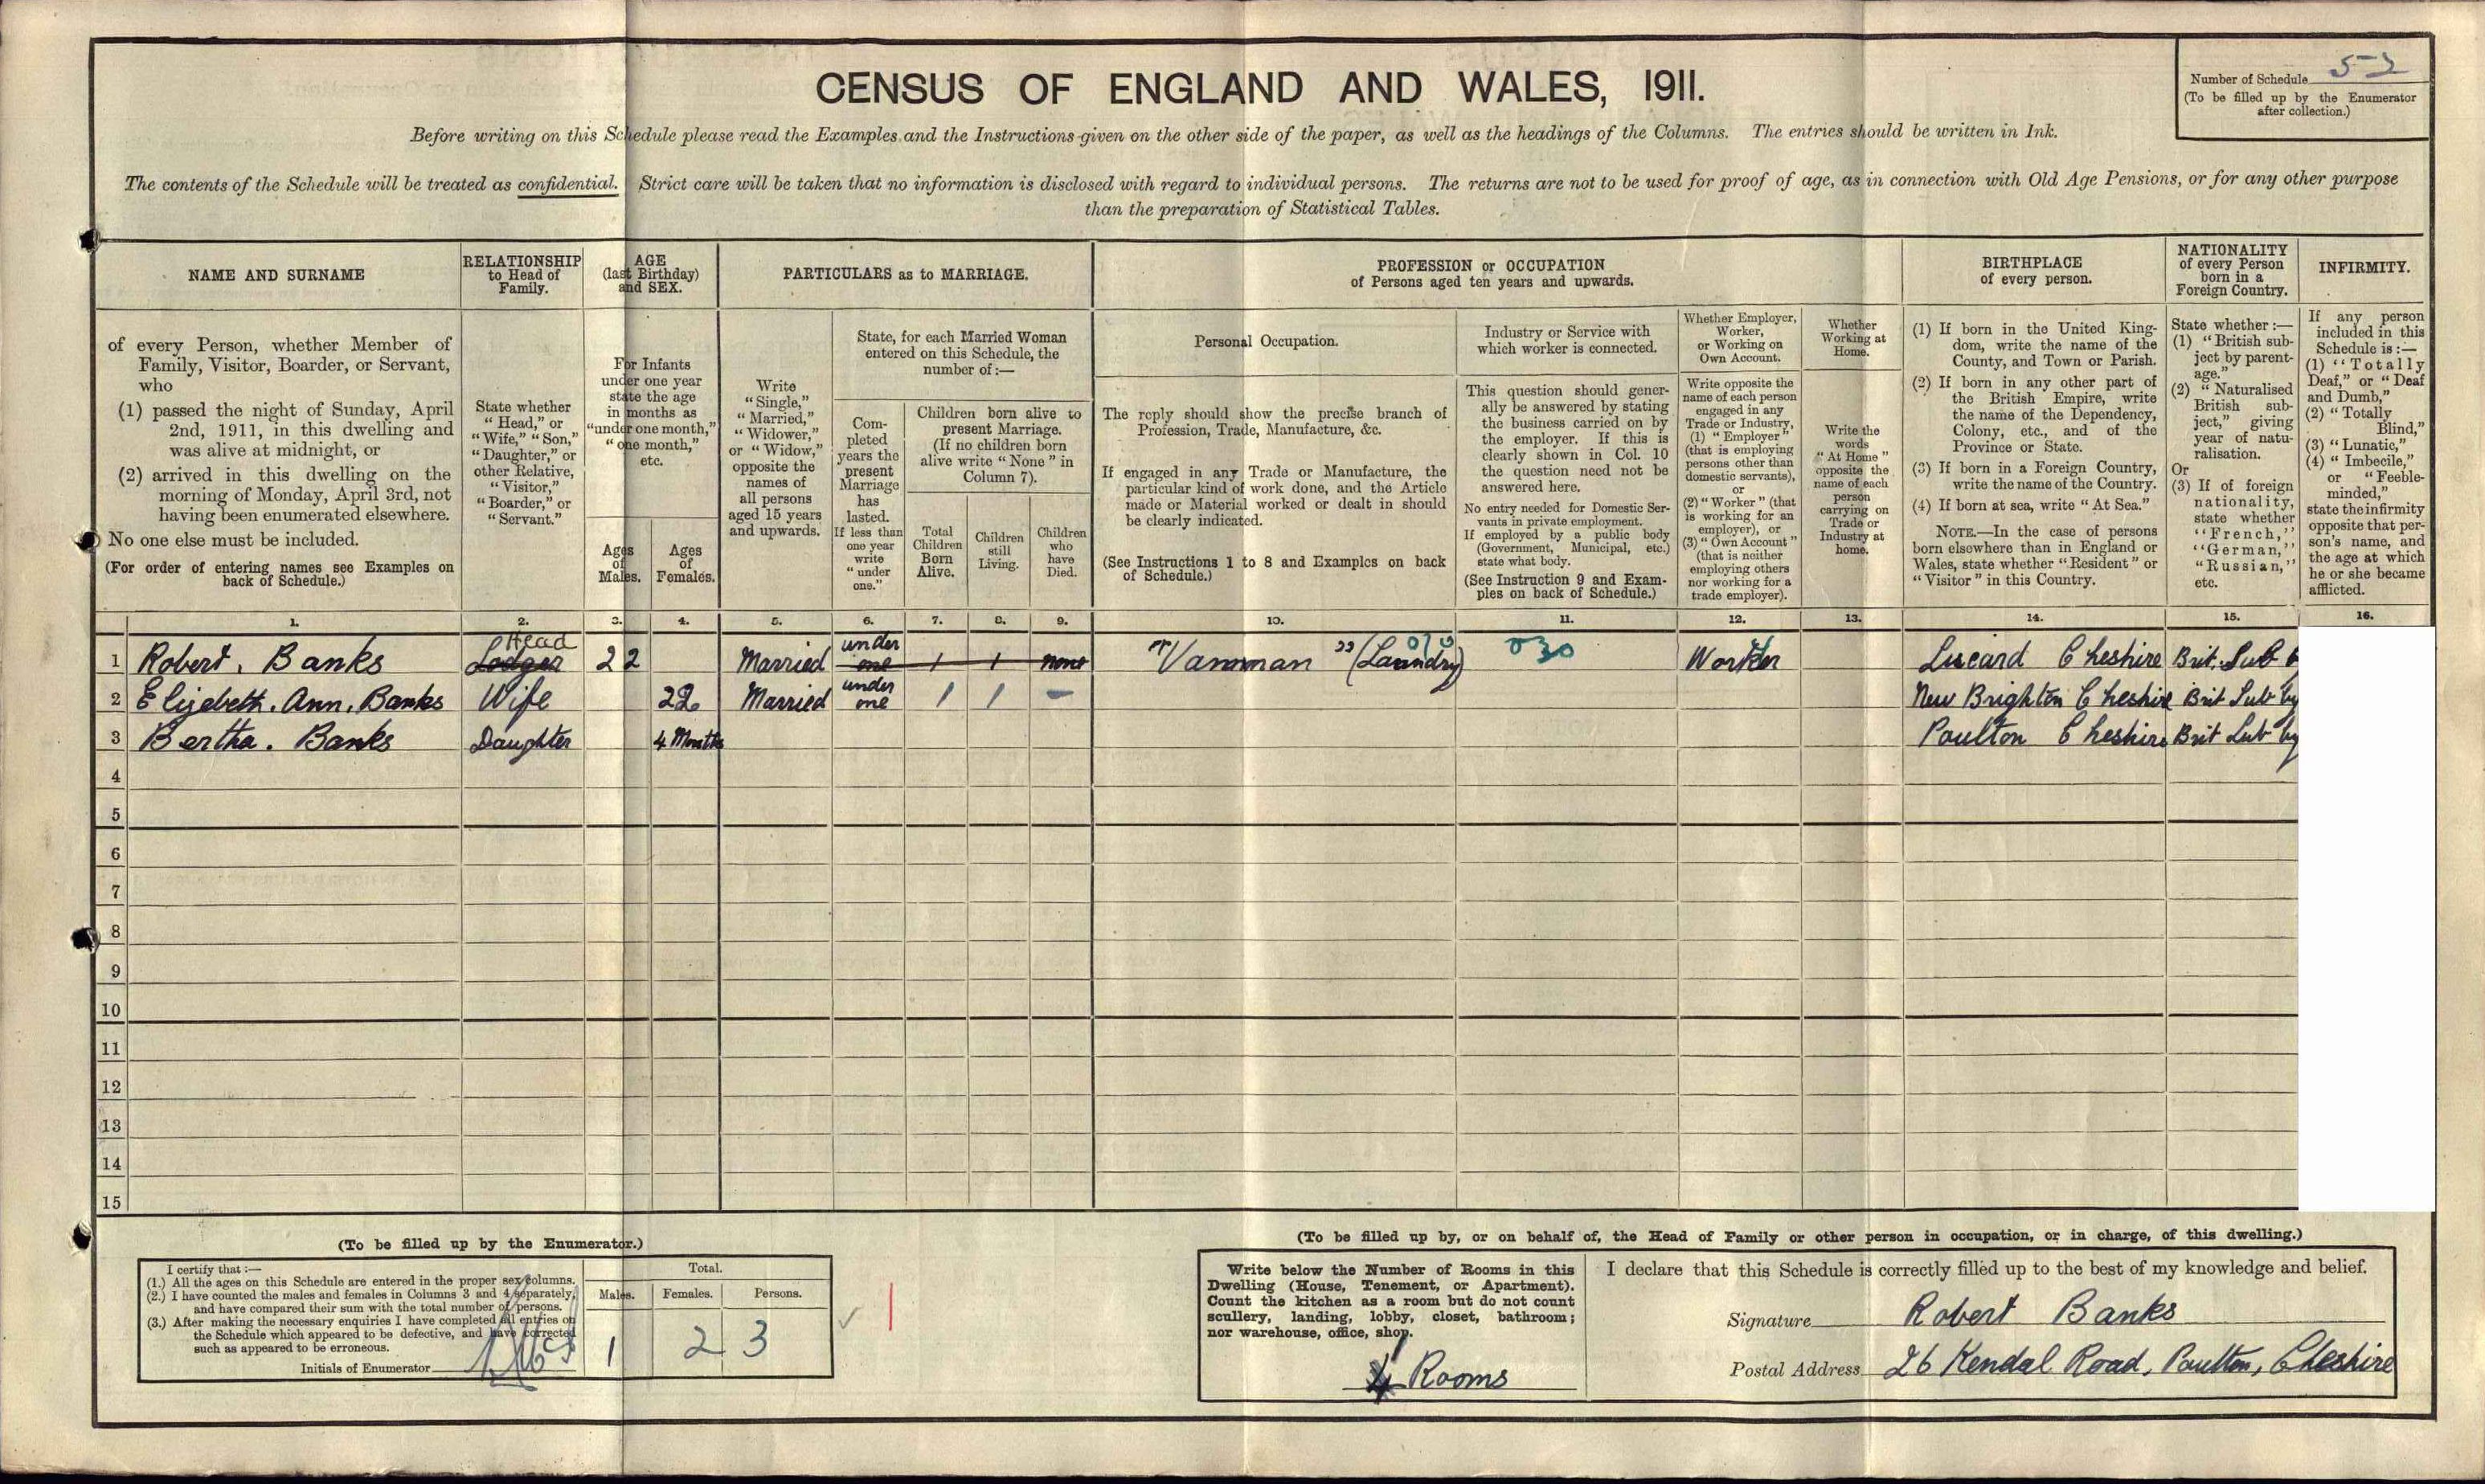 CENSUS OF ENGLAND AND WALES, 1911.
Number of Schedule 52
(To be filled up by the Enumerator
after collection.)
Before writing on this Schedule please read the Examples and the Instructions given on the other side of the paper, as well as the headings of the Columns. The entries should be written in Ink.
The contents of the Schedule will be treated as confidential. Strict care will be taken that no information is disclosed with regard to individual persons. The returns are not to be used for proof of age, as in connection with Old Age Pensions, or for any other purpose
than the preparation of Statistical Tables.
NAME AND SURNAME
of every Person, whether Member of
Family, Visitor, Boarder, or Servant,
who
(1) passed the night of Sunday, April
2nd, 1911, in this dwelling and
was alive at midnight, or
(2) arrived in this dwelling on the
morning of Monday, April 3rd, not
having been enumerated elsewhere.
No one else must be included.
(For order of entering names see Examples on
back of Schedule.)
RELATIONSHIP
to Head of
Family.
State whether
"Head," or
"Wife," "Son,"
"Daughter," or
other Relative,
"Visitor,"
"Boarder," or
"Servant."
AGE
(last Birthday)
and SEX.
For Infants
under one year
state the age
in months as
"under one month,"
"one month,"
etc.
Ages
of
Males.
Ages
of
Females.
PARTICULARS as to MARRIAGE.
Write
"Single,"
"Married,"
"Widower,"
or "Widow,"
opposite the
names of
all persons
aged 15 years
and upwards.
State, for each Married Woman
entered on this Schedule, the
number of:—
Com-
pleted
years the
present
Marriage
has
lasted.
If less than
one year
write
"under
one."
Children born alive to
present Marriage.
(If no children born
alive write "None" in
Column 7).
Total
Children
Born
Alive.
Children
still
Living.
Children
who
have
Died.
PROFESSION or OCCUPATION
of Persons aged ten years and upwards.
Personal Occupation.
The reply should show the precise branch of
Profession, Trade, Manufacture, &c.
If engaged in any Trade or Manufacture, the
particular kind of work done, and the Article
made or Material worked or dealt in should
be clearly indicated.
(See Instructions 1 to 8 and Examples on back
of Schedule.)
Industry or Service with
which worker is connected.
This question should gener-
ally be answered by stating
the business carried on by
the employer. If this is
clearly shown in Col. 10
the question need not be
answered here.
No entry needed for Domestic Ser-
vants in private employment.
If employed by a public body
(Government, Municipal, etc.)
state what body.
(See Instruction 9 and Exam-
ples on back of Schedule.)
Whether Employer,
Worker,
or Working on
Own Account.
Write opposite the
name of each person
engaged in any
Trade or Industry,
(1) "Employer"
(that is employing
persons other than
domestic servants),
or
(2) "Worker" (that
is working for an
employer), or
(3) "Own Account"
(that is neither
employing others
nor working for a
trade employer).
Whether
Working at
Home.
Write the
words
"At Home"
opposite the
name of each
person
carrying on
Trade or
Industry at
home.
BIRTHPLACE
of every person.
(1) If born in the United King-
dom, write the name of the
County, and Town or Parish.
(2) If born in any other part of
the British Empire, write
the name of the Dependency,
Colony, etc., and of the
Province or State.
(3) If born in a Foreign Country,
write the name of the Country.
(4) If born at sea, write "At Sea."
NOTE.—In the case of persons
born elsewhere than in England or
Wales, state whether "Resident" or
"Visitor" in this Country.
NATIONALITY
of every Person
born in a
Foreign Country.
State whether:—
(1) "British sub-
ject by parent-
age."
(2) "Naturalised
British sub-
ject," giving
year of natu-
ralisation.
Or
(3) If of foreign
nationality,
state whether
"French,"
"German,"
"Russian,"
etc.
INFIRMITY.
If any person
included in this
Schedule is:—
(1) "Totally
Deaf," or "Deaf
and Dumb,"
(2) "Totally
Blind,"
(3) "Lunatic,"
(4) "Imbecile,"
or "Feeble-
minded,"
state the infirmity
opposite that per-
son's name, and
the age at which
he or she became
afflicted.
1. 2. 3. 4. 5. 6. 7. 8. 9. 10. 11. 12. 13. 14. 15. 16.
Head under
1 Robert. Banks Lodger 22 Married one 1 1 none "Vanman" (Laundry) 030 Worker Liscard Cheshire Brit. Sub b
under
2 Elizebeth. Ann. Banks Wife 22 Married one 1 1 - New Brighton Cheshire Brit Sub by
3 Bertha. Banks Daughter 4 Months Poulton Cheshire Brit Sub by
4
5
6
7
8
9
10
11
12
13
14
15
(To be filled up by the Enumerator.)
I certify that:—
(1.) All the ages on this Schedule are entered in the proper sex columns.
(2.) I have counted the males and females in Columns 3 and 4 separately,
and have compared their sum with the total number of persons.
(3.) After making the necessary enquiries I have completed all entries on
the Schedule which appeared to be defective, and have corrected
such as appeared to be erroneous.
Initials of Enumerator
Total.
Males. Females. Persons.
1 2 3
(To be filled up by, or on behalf of, the Head of Family or other person in occupation, or in charge, of this dwelling.)
Write below the Number of Rooms in this
Dwelling (House, Tenement, or Apartment).
Count the kitchen as a room but do not count
scullery, landing, lobby, closet, bathroom;
nor warehouse, office, shop.
4 Rooms
I declare that this Schedule is correctly filled up to the best of my knowledge and belief.
Signature Robert Banks
Postal Address 26 Kendal Road, Poulton, Cheshire